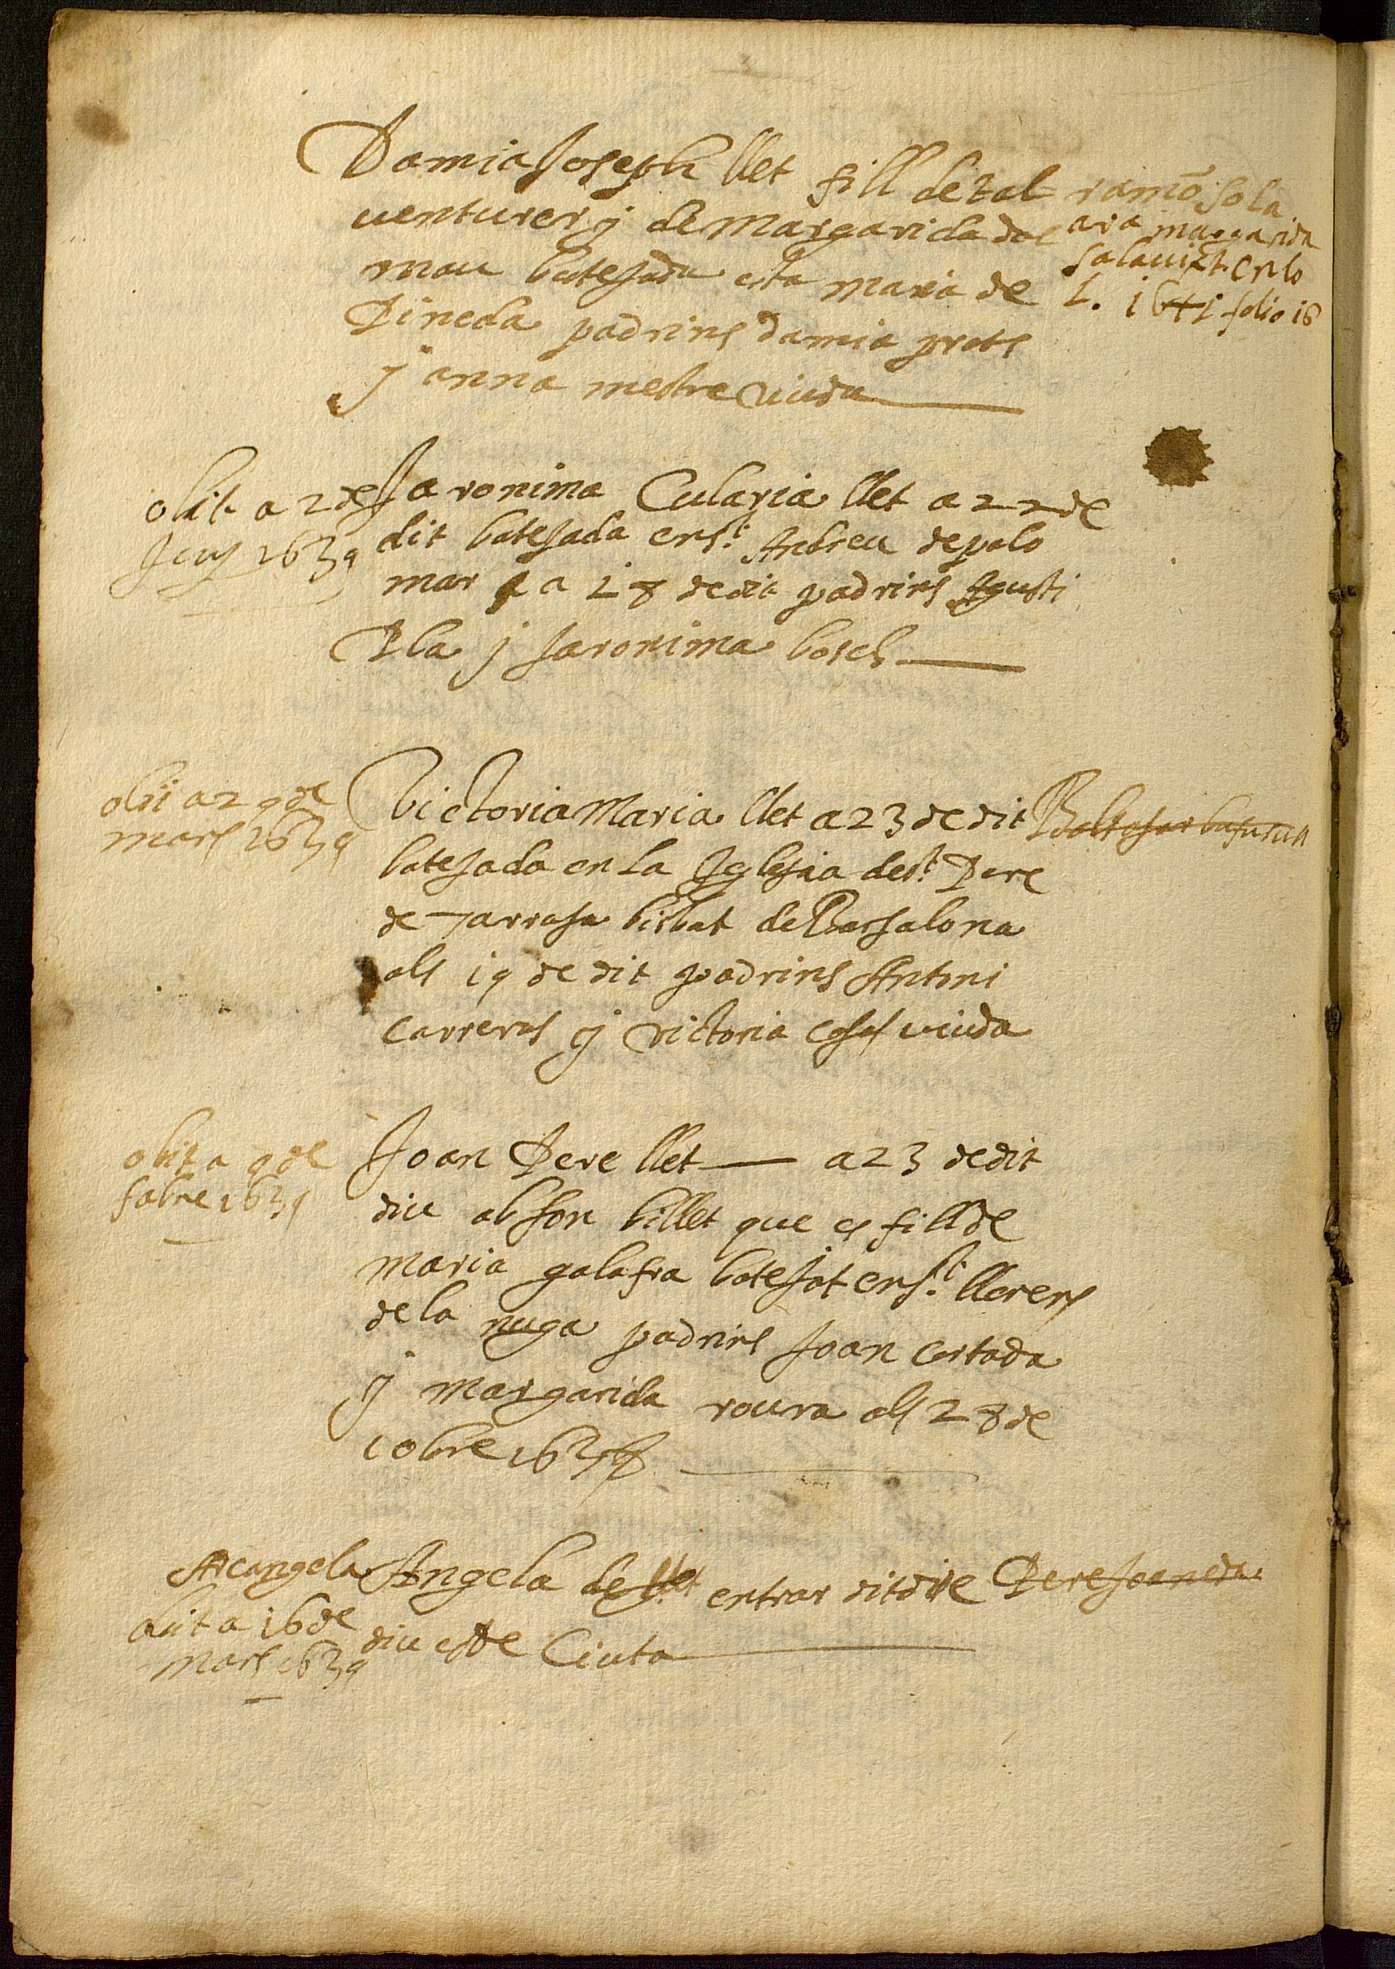 Damia Joseph llet fill de tal
venturer y de Margarida dal
mau batejada esta maria de
Pineda padrins damia prats
y anna mestre viuda
ramō sola
ara margarida
salavert en lo
L. 1641 folio 18
obit a 2 de
Juny 1639
Jaronima Cularia llet a 22 de
dit batejada en st. Andreu de palo
mar a 18 de dit padrins Agusti
Pla y Jaronima bosch
obit a 29 de
mars 1639
Victoria Maria llet a 23 de dit
batejada en la Iglesia de st. Pere
de Tarrasa bisbat de Barsalona
als 19 de dit padrins Antoni
Carreras y victoria cosas viuda
Baltasar
obit a 9 de
1639
Joan Pere llet a 23 de dit
diu ab son billet que es fill de
maria galafra batejat en st. llorens
de la muga padrins Joan Cortada
y margarida roura als 28 de
10bre 1638
Arcangela
obit a 16 de
mars 1639
Angela de llet entrar dit die
diu es de Ciuta
Pere Joaneda